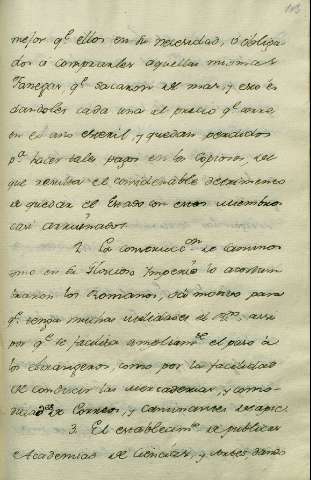 mejor qe ellos en su necesidad, o obliga-
dos a comprarles aquellas mismas
fanegas qe sacaron de mas, y eso es
dandoles cada una al precio qe corre
en el año esteril, y quedan perdidos
pa hacer tales pagos en los Copiosos, de
que resulta el considerable detrimento
de quedar el Estado con esos miembros
casi arruinados.
2. La construccon de caminos
como en su Imperio lo acostum
braron los Romanos, da motivo para
qe tenga muchas utilidades el asi
por qe se facilita el paso a
los estrangeros, como por la facilidad
de conducir las mercaderias, y como-
didad de Correos, y caminantes de a pie.
3. El establecimto de publicas
Academias de Ciencias, y Artes dando